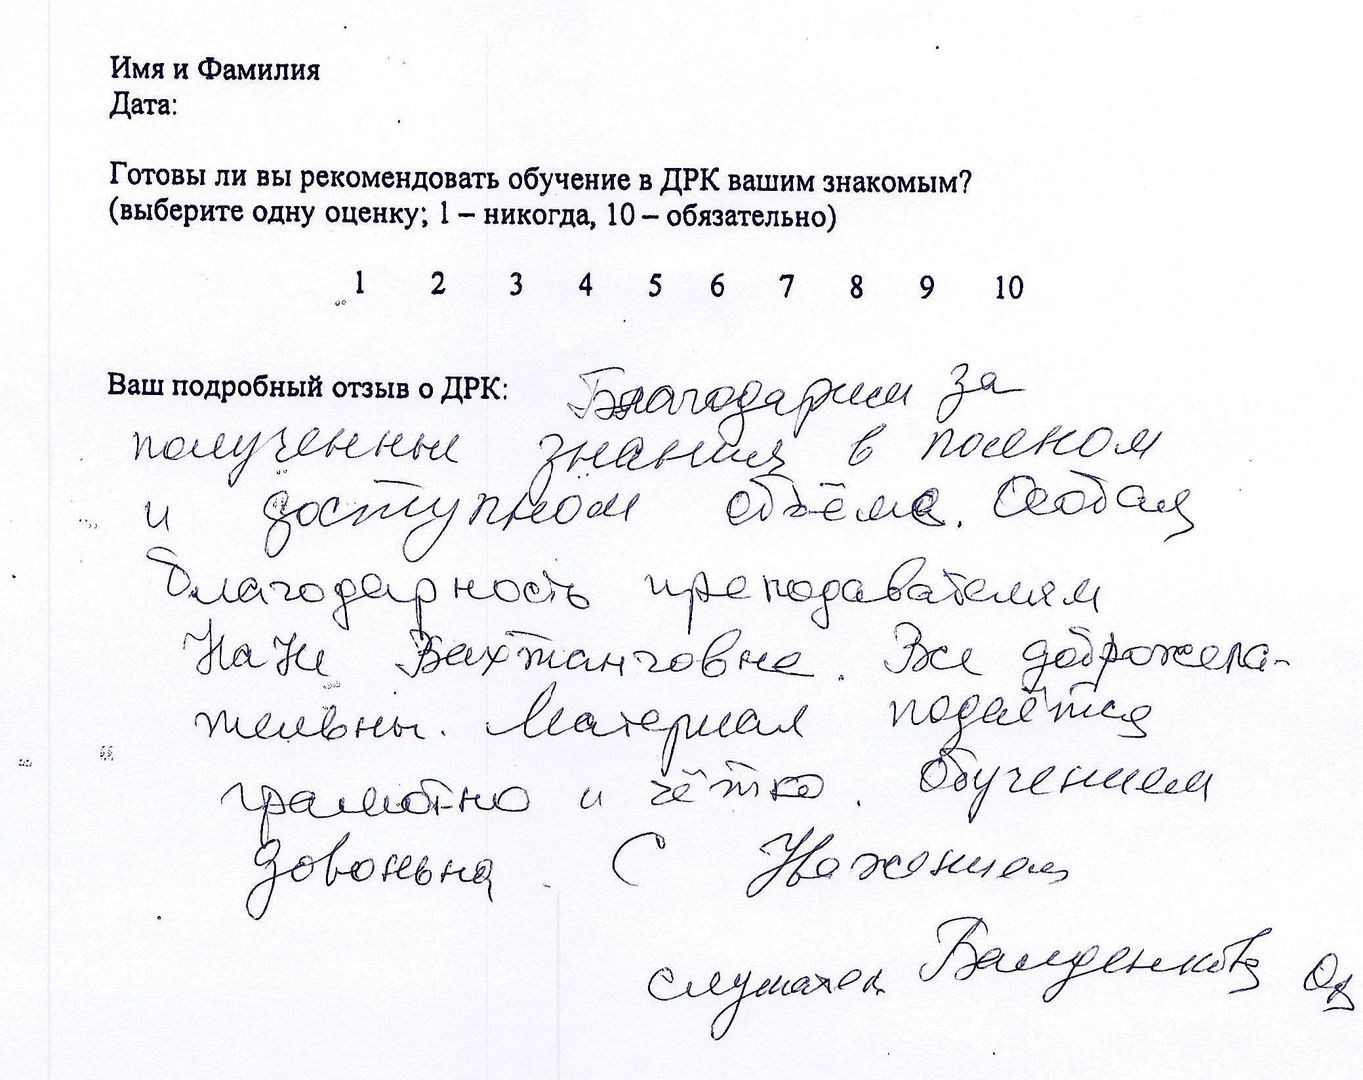 Имя и Фамилия
Дата:
Готовы ли вы рекомендовать обучение в ДРК вашим знакомым?
(выберите одну оценку; 1 – никогда, 10 – обязательно)
1 2 3 4 5 6 7 8 9 10
Ваш подробный отзыв о ДРК: Благодарим за
полученные знания в полном
и доступном объёме. Особая
благодарность преподавателям
Вахтанговне. Все доброжела-
тельны. Материал подаётся
грамотно и чётко. Обучением
довольна. С Уважением